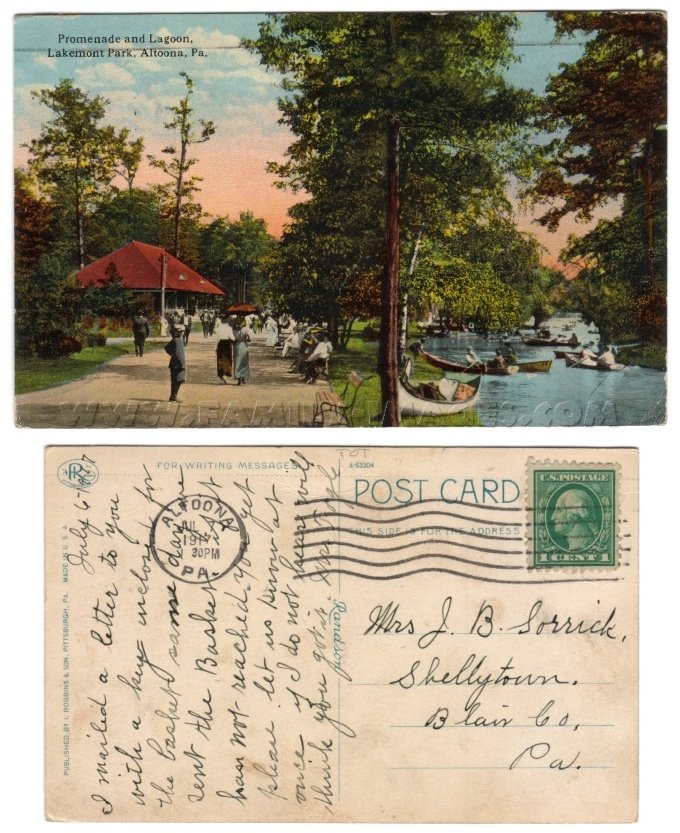 Promenade and Lagoon,
Lakemont Park, Altoona, Pa.
FOR WRITING MESSAGES
A-53304
POST CARD
THIS SIDE IS FOR THE ADDRESS
U.S. POSTAGE
1 CENT 1
ALTOONA
JUL
30PM
PA.
PUBLISHED BY I. ROBBINS & SON, PITTSBURGH, PA. MADE IN U.S.A.
July 6-1917
I mailed a letter to you
with a key inclosed for
the basket same day we
sent the Basket if it
has not reached you yet
please let us know at
once if I do not hear will
think you got it
Mrs J. B. Sorrick,
Shellytown.
Blair Co,
Pa.